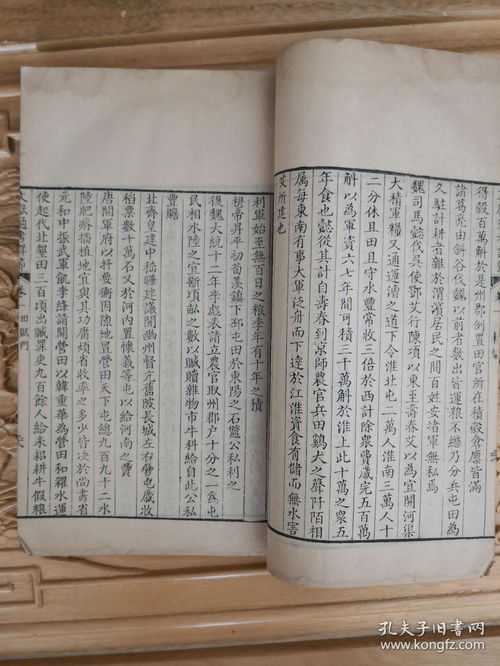 得穀百萬斛於是州郡例置田官所在積穀倉廩皆滿
諸葛亮由斜谷伐魏以前者數出皆運粮不繼乃分兵屯田為
久駐計耕者雜於渭濱居民之間百姓安堵軍無私焉
魏司馬懿伐吳使鄧艾行陳項以東至壽春艾以為宜開河渠
大積軍糧又通運漕之道下令淮北屯二萬人淮南三萬人十
二分休且田且守水豐常收三倍於西計除眾費歲完五百萬
斛以為軍資六七年間可積三千萬斛於淮上此十萬之眾五
年食也懿從其計自壽春到京師農官兵田鷄犬之聲阡陌相
属每東南有事大軍泛舟而下達於江淮資食有儲而無水害
艾所建也
利軍始至無百日之粮季年有十年之積
穆帝昇平初荀羨鎮下邳屯田於東陽之石鼈公私利之
後魏大統十二年李彪表請立農官取州郡户十分之一為屯
民相水陸之宜斷頃畝之數以贓贖雜物市牛科給自此公私
豐贍
北齊皇建中嵇曄建議開幽州督亢舊陂長城左右營屯歲收
稻粟數十萬石又於河内置懷義等屯以給河南之費
唐開軍府以捍要衝因隙地置營田天下屯總九百九十二水
陸肥瘠播植地宜與其功庸煩省收率之多少皆决於尚書省
元和中振武軍飢李絳請開營田以韓重華為營田和糴水運
使起代北墾田三百頃出贓罪吏九百餘人給耒耜耕牛假粮
文獻通考詳節 卷一 田賦門
孔夫子旧书网
www.kongfz.com